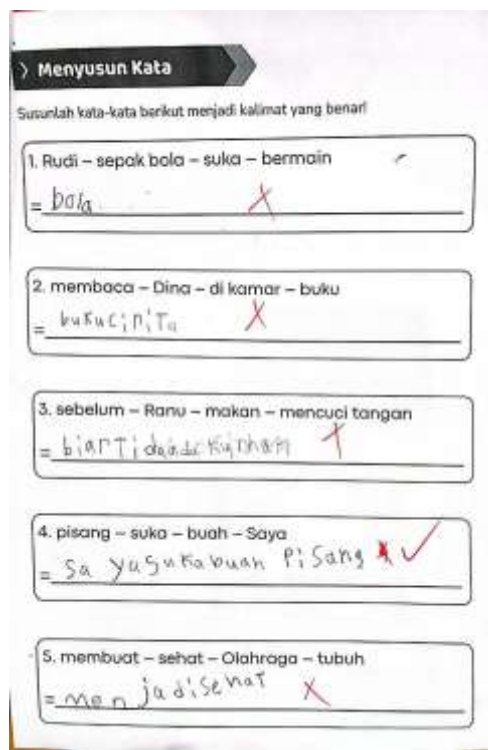 Menyusun Kata
Susunlah kata-kata berikut menjadi kalimat yang benar!
1. Rudi – sepak bola – suka – bermain
= bola
2. membaca – Dina – di kamar – buku
= bukuciriTa
3. sebelum – Ranu – makan – mencuci tangan
= biarTida
4. pisang – suka – buah – Saya
= Sa yasukabuah Pisang
5. membuat – sehat – Olahraga – tubuh
= men jadisehaT